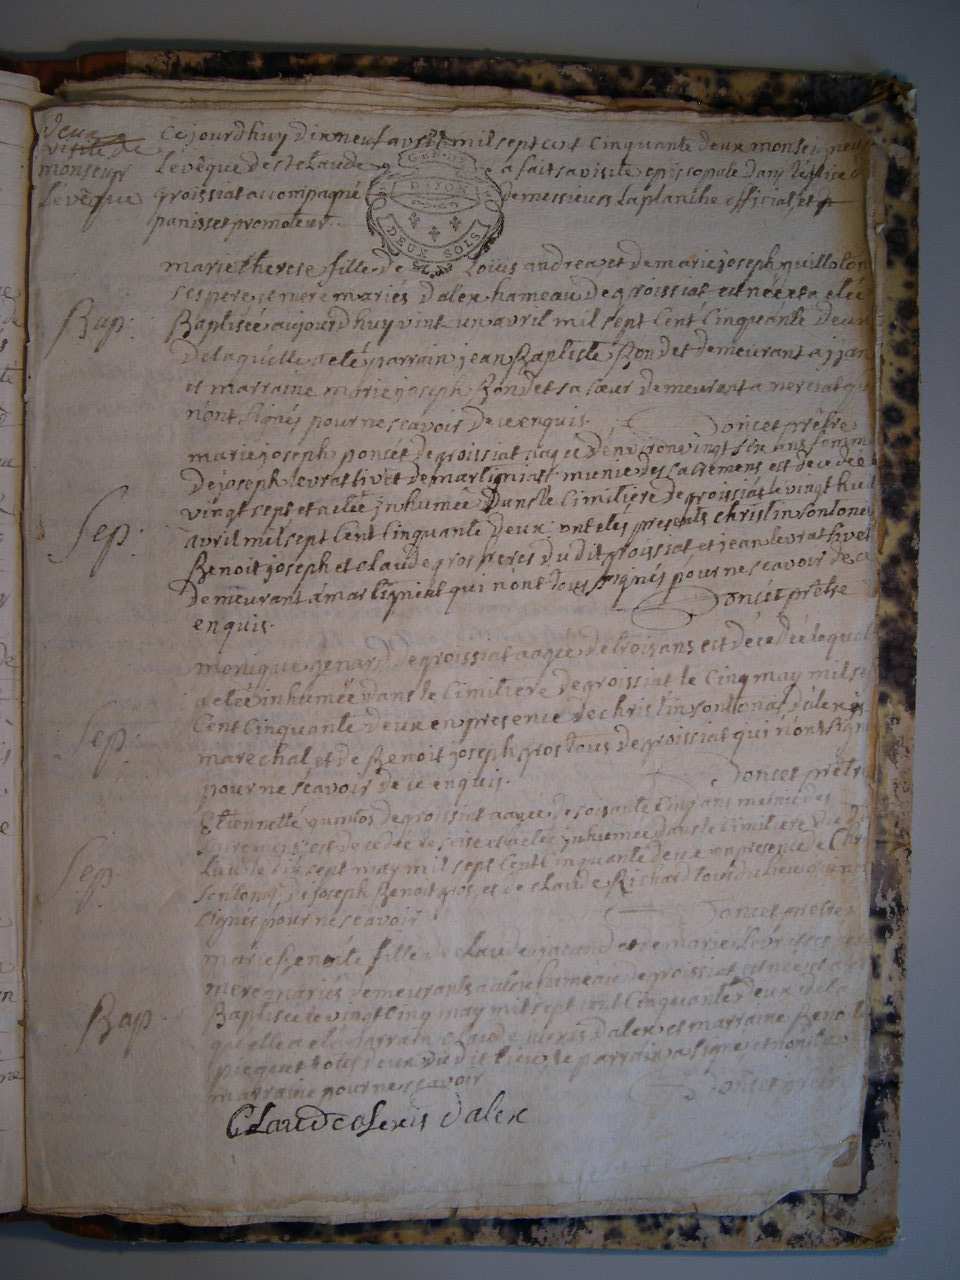 deux
visite de
monseigr
levêque
Cejourdhuy dixneuf avril mil sept cent Cinquante deux monseigneur
levêque de st Claude a fait sa visite episcopale dans leglise de
groissiat accompagné de messieurs la planche official, et
panisset promoteur.
DIJON
DEUX SOLS
marie therese fille de loüis andrea, et de marie joseph guillolon
ses pere et mere mariés d'alex hameau de groissiat est née et a eté
Bap:
Baptisée aujourdhuy vint un avril mil sept Cent Cinquante deux
de laquelle a eté parrain jean Baptiste Bondet demeurant a
et marraine marie joseph Bondet sa sœur demeurant a nerciat qui
n'ont signés pour ne scavoir de ce enquis. Poncet prêtre
marie joseph poncet de groissiat aagée d'environ vingt six ans femme
de joseph levrat livet de martigniat munie des sacremens est decedée
vingt sept et a eté inhumée dans le cimitiere de groissiat le vingt huit
Sep:
avril mil sept Cent Cinquante deux. ont etés presents christin sonlonas
Benoit joseph et claude gros freres du dit groissiat et jean levrat livet
demeurant a martigniat qui n'ont tous signés pour ne scavoir de ce
enquis. Poncet prêtre
monique de groissiat aagée de trois ans est decedée laquelle
a eté inhumée dans le Cimitiere de groissiat le Cinq may mil sept
Sep:
Cent Cinquante deux en presence de christin sonlonas, d'alexis
marechal et de Benoit joseph gros tous de groissiat qui n'ont signé
pour ne scavoir de ce enquis. Poncet prêtre
Etiennette de groissiat aagée de soisante Cinq ans munie des
sacremens est decedée le seise et a eté inhumée dans le Cimitiere du dit
Sep:
lieu le dix sept may mil sept Cent Cinquante deux en presence de Chris
sonlonas, de joseph Benoit gros, et de claude Richard tous du lieu qui n'ont
signés pour ne scavoir Poncet prêtre
marie Benoite fille de claude et de marie ses pere
mere mariés demeurants a alex hameau de groissiat est née et a eté
Bap:
Baptisée le vingt Cinq may mil sept cent Cinquante deux de la
quelle a eté parrain claude alexis d'alex et marraine Benoite
piequet tous deux du dit lieu, le parrain a signé et non la
marraine pour ne scavoir Poncet prêtre
Claude alexis d'alex